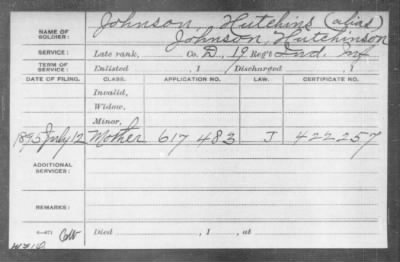 NAME OF SOLDIER: Johnson, Hutchins (alias)
Johnson, Hutchinson
SERVICE: Late rank, Co. D, 19 Reg't Ind. Inf
TERM OF SERVICE: Enlisted , 1 Discharged , 1
DATE OF FILING. CLASS. APPLICATION NO. LAW. CERTIFICATE NO.
Invalid,
Widow,
Minor,
1895 July 12 Mother 617 483 J 422257
ADDITIONAL SERVICES:
REMARKS:
Died , 1 , at